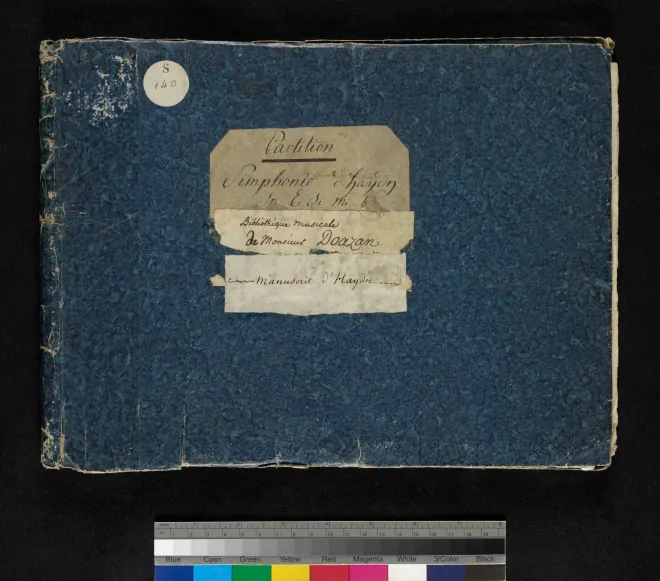 S
140
Partition
Simphonie d'haydn
In E de mi b
Bibliothéque musicale
de Monsieur Doazan
Manuscrit d'Haydn
Blue Cyan Green Yellow Red Magenta White 3/Color Black